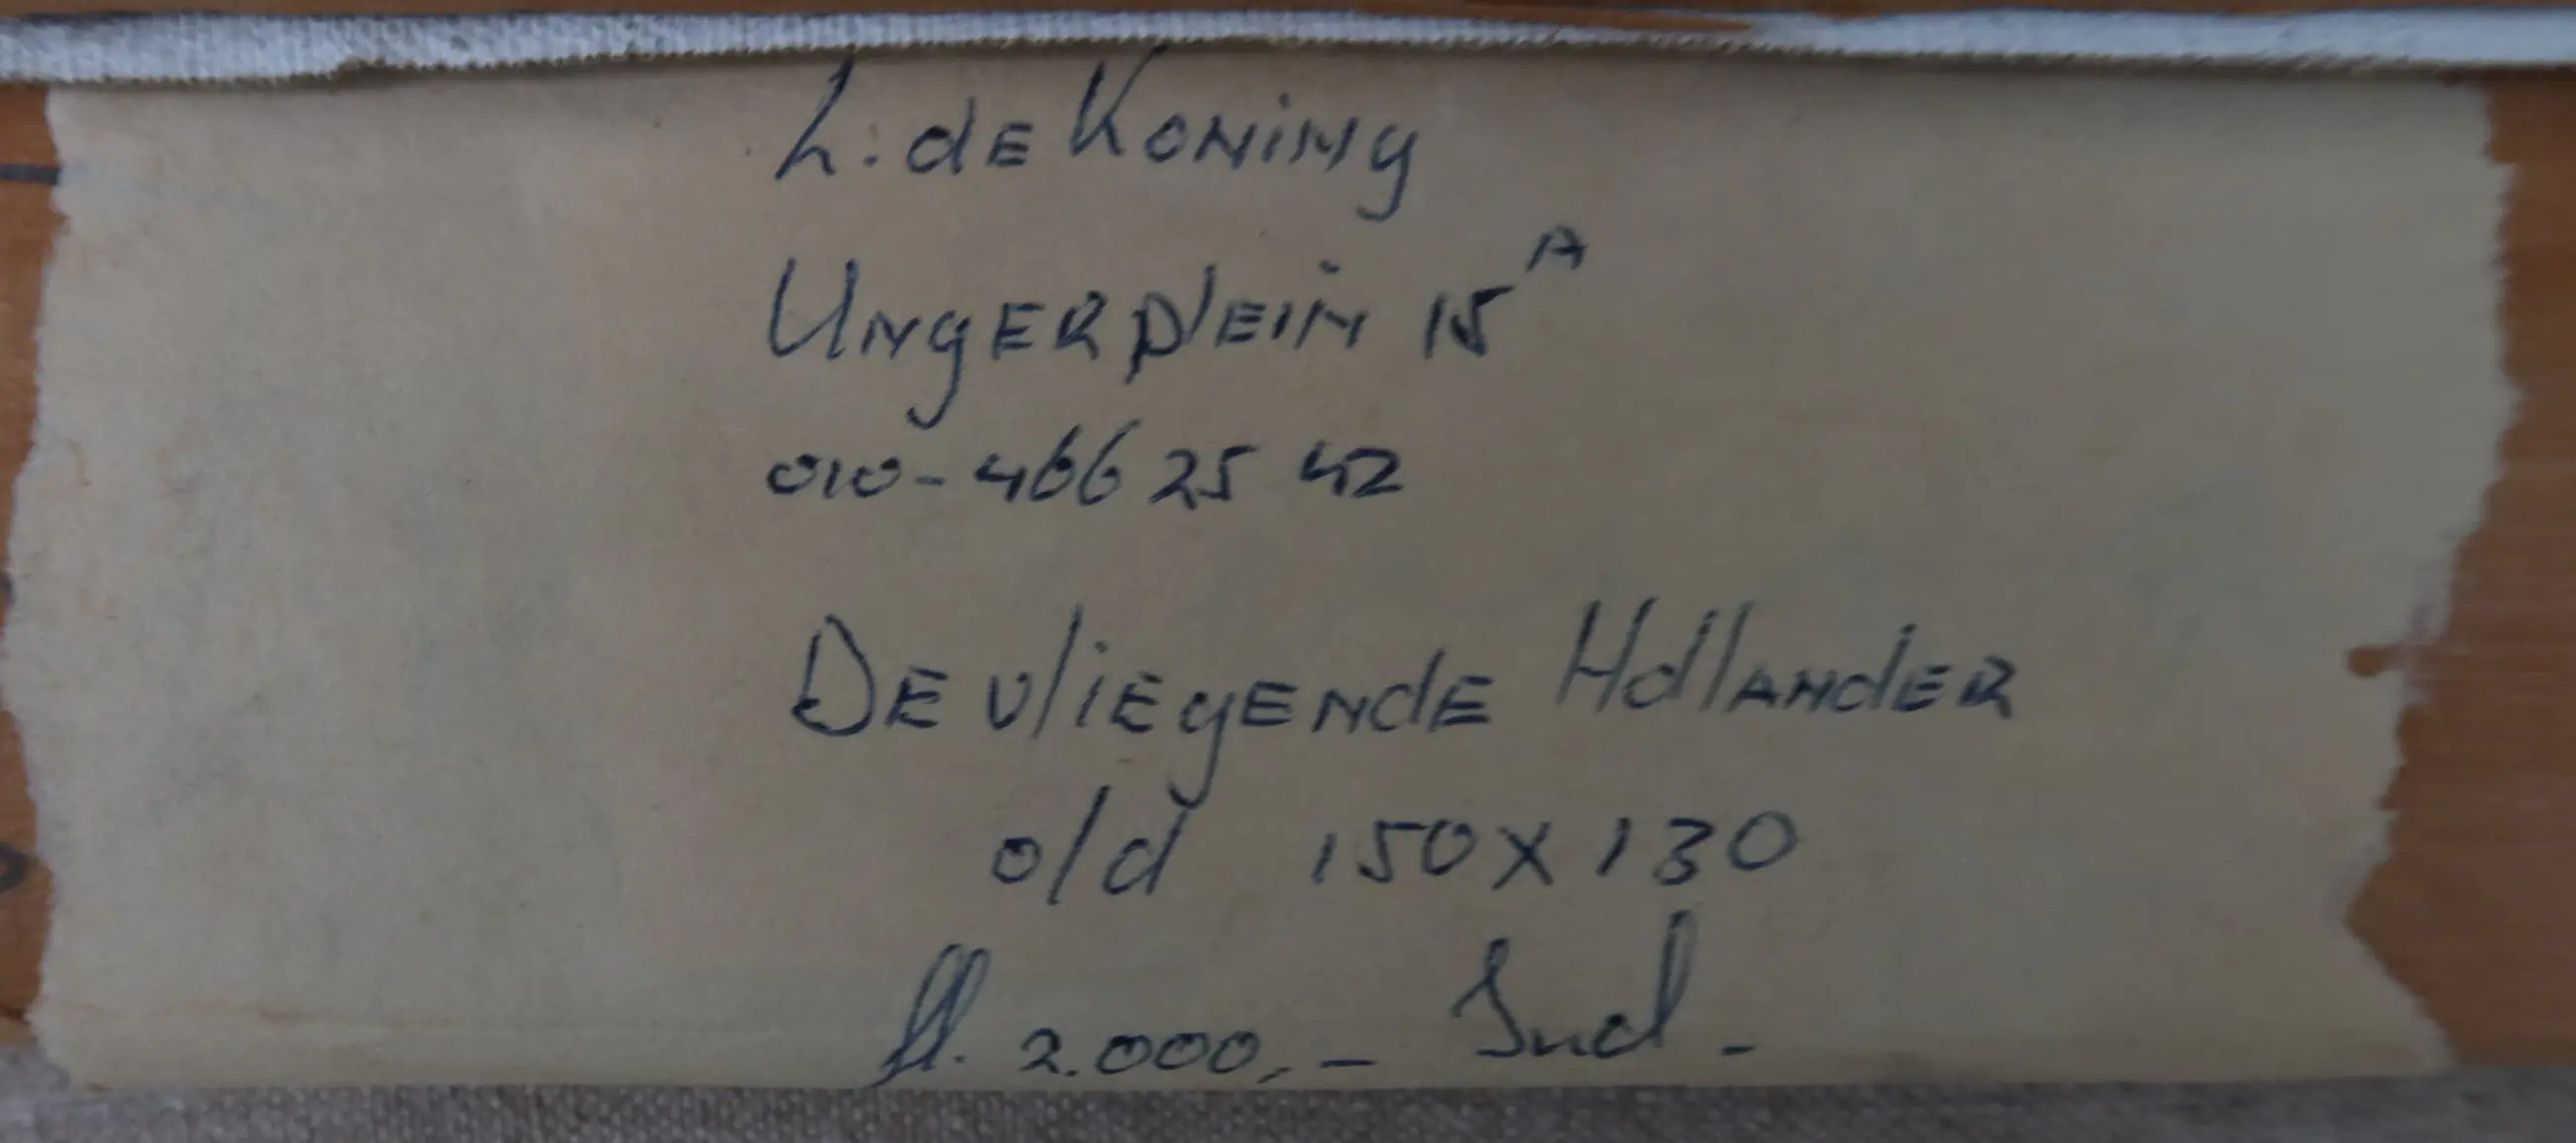 L. de Koning
Ungerplein 15A
010-466 25 42
De vliegende Hollander
o/d 150 x 130
fl. 2.000,- Incl.